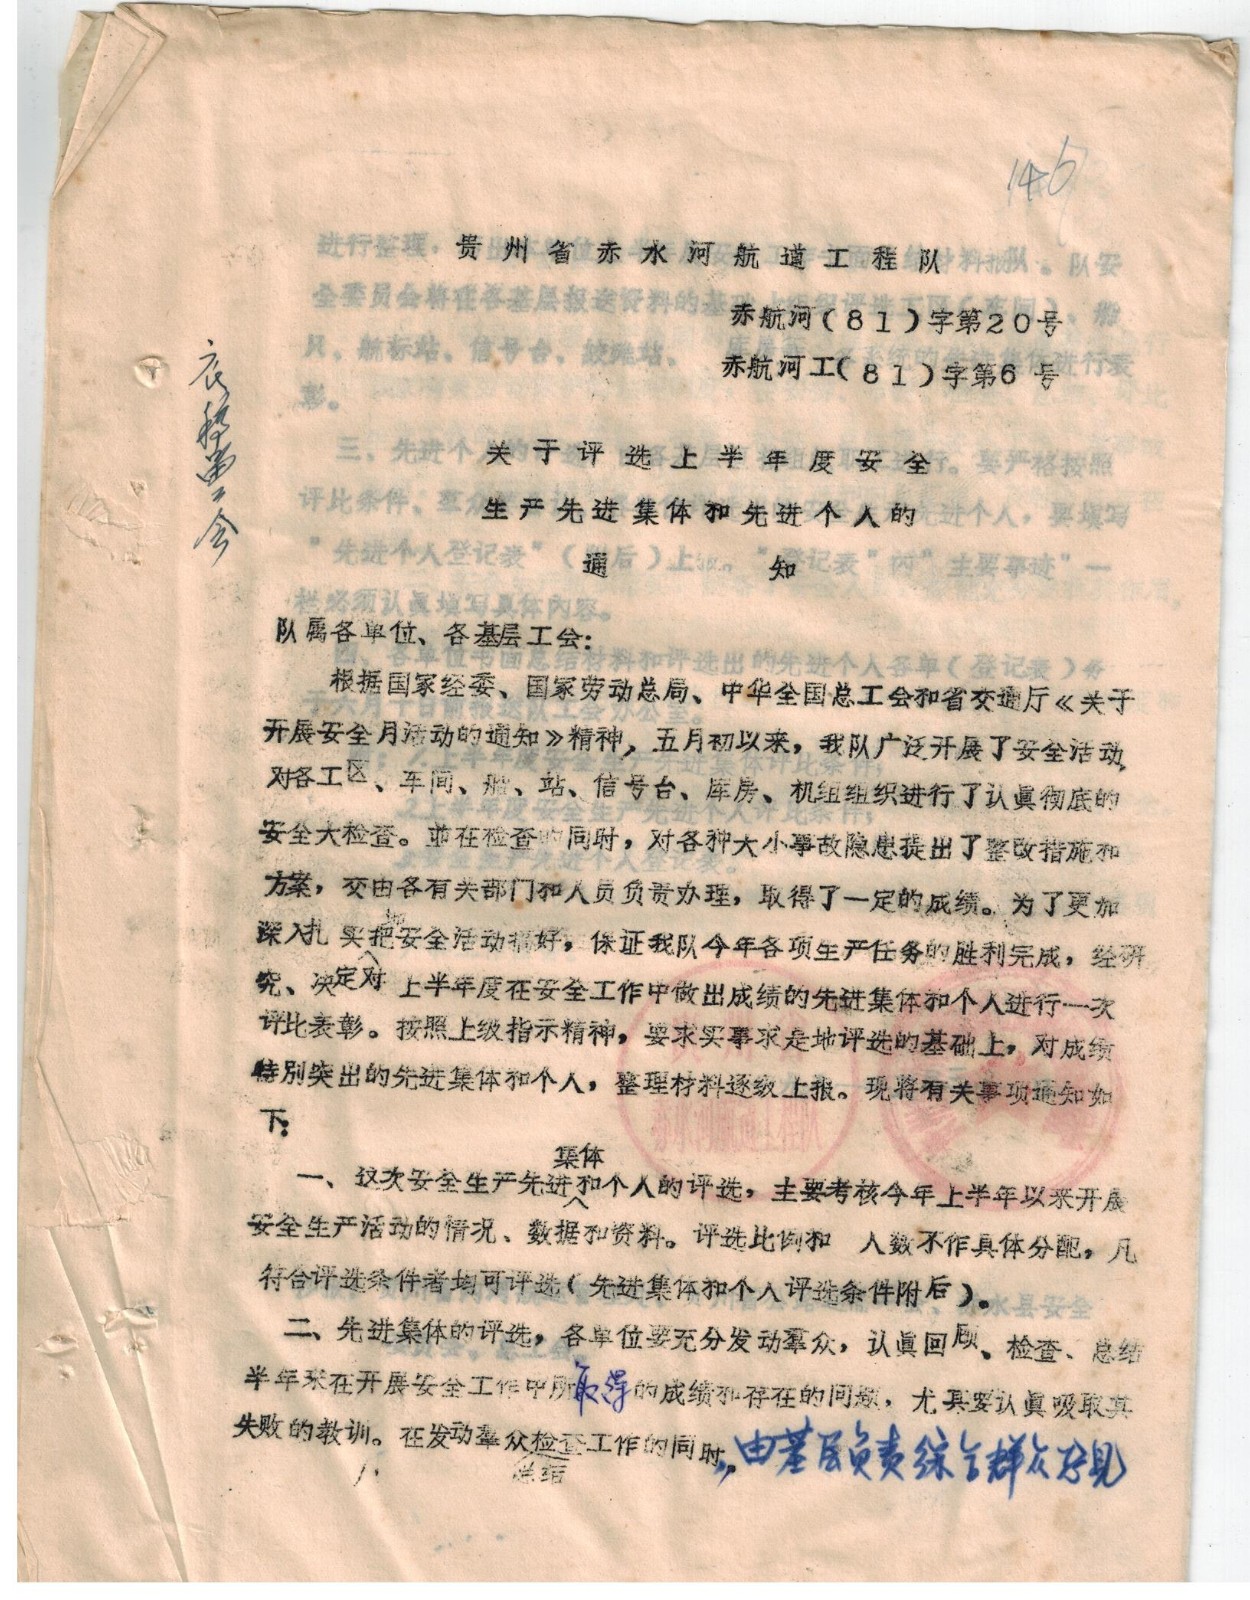 146
贵州省赤水河航道工程队
赤航河(81)字第20号
赤航河工(81)字第6号
关于评选上半年度安全
生产先进集体和先进个人的
通知
队属各单位、各基层工会:
根据国家经委、国家劳动总局、中华全国总工会和省交通厅《关于
开展安全月活动的通知》精神,五月初以来,我队广泛开展了安全活动,
对各工区、车间、船、站、信号台、库房、机组组织进行了认眞彻底的
安全大检查。並在检查的同时,对各种大小事故隐患提出了整改措施和
方案,交由各有关部门和人员负责办理,取得了一定的成绩。为了更加
深入扎实把安全活动搞好,保证我队今年各项生产任务的胜利完成,经研
究、决定对上半年度在安全工作中做出成绩的先进集体和个人进行一次
评比表彰。按照上级指示精神,要求实事求是地评选的基础上,对成绩
特别突出的先进集体和个人,整理材料逐级上报。现将有关事项通知如
下:
一、这次安全生产先进集体和个人的评选,主要考核今年上半年以来开展
安全生产活动的情况、数据和资料。评选比例和 人数不作具体分配,凡
符合评选条件者均可评选(先进集体和个人评选条件附后)。
二、先进集体的评选,各单位要充分发动羣众,认眞回顾、检查、总结
半年来在开展安全工作中所取得的成绩和存在的问题,尤其要认眞吸取其
失败的教训。在发动羣众检查总结工作的同时,由基层负责综合群众意见